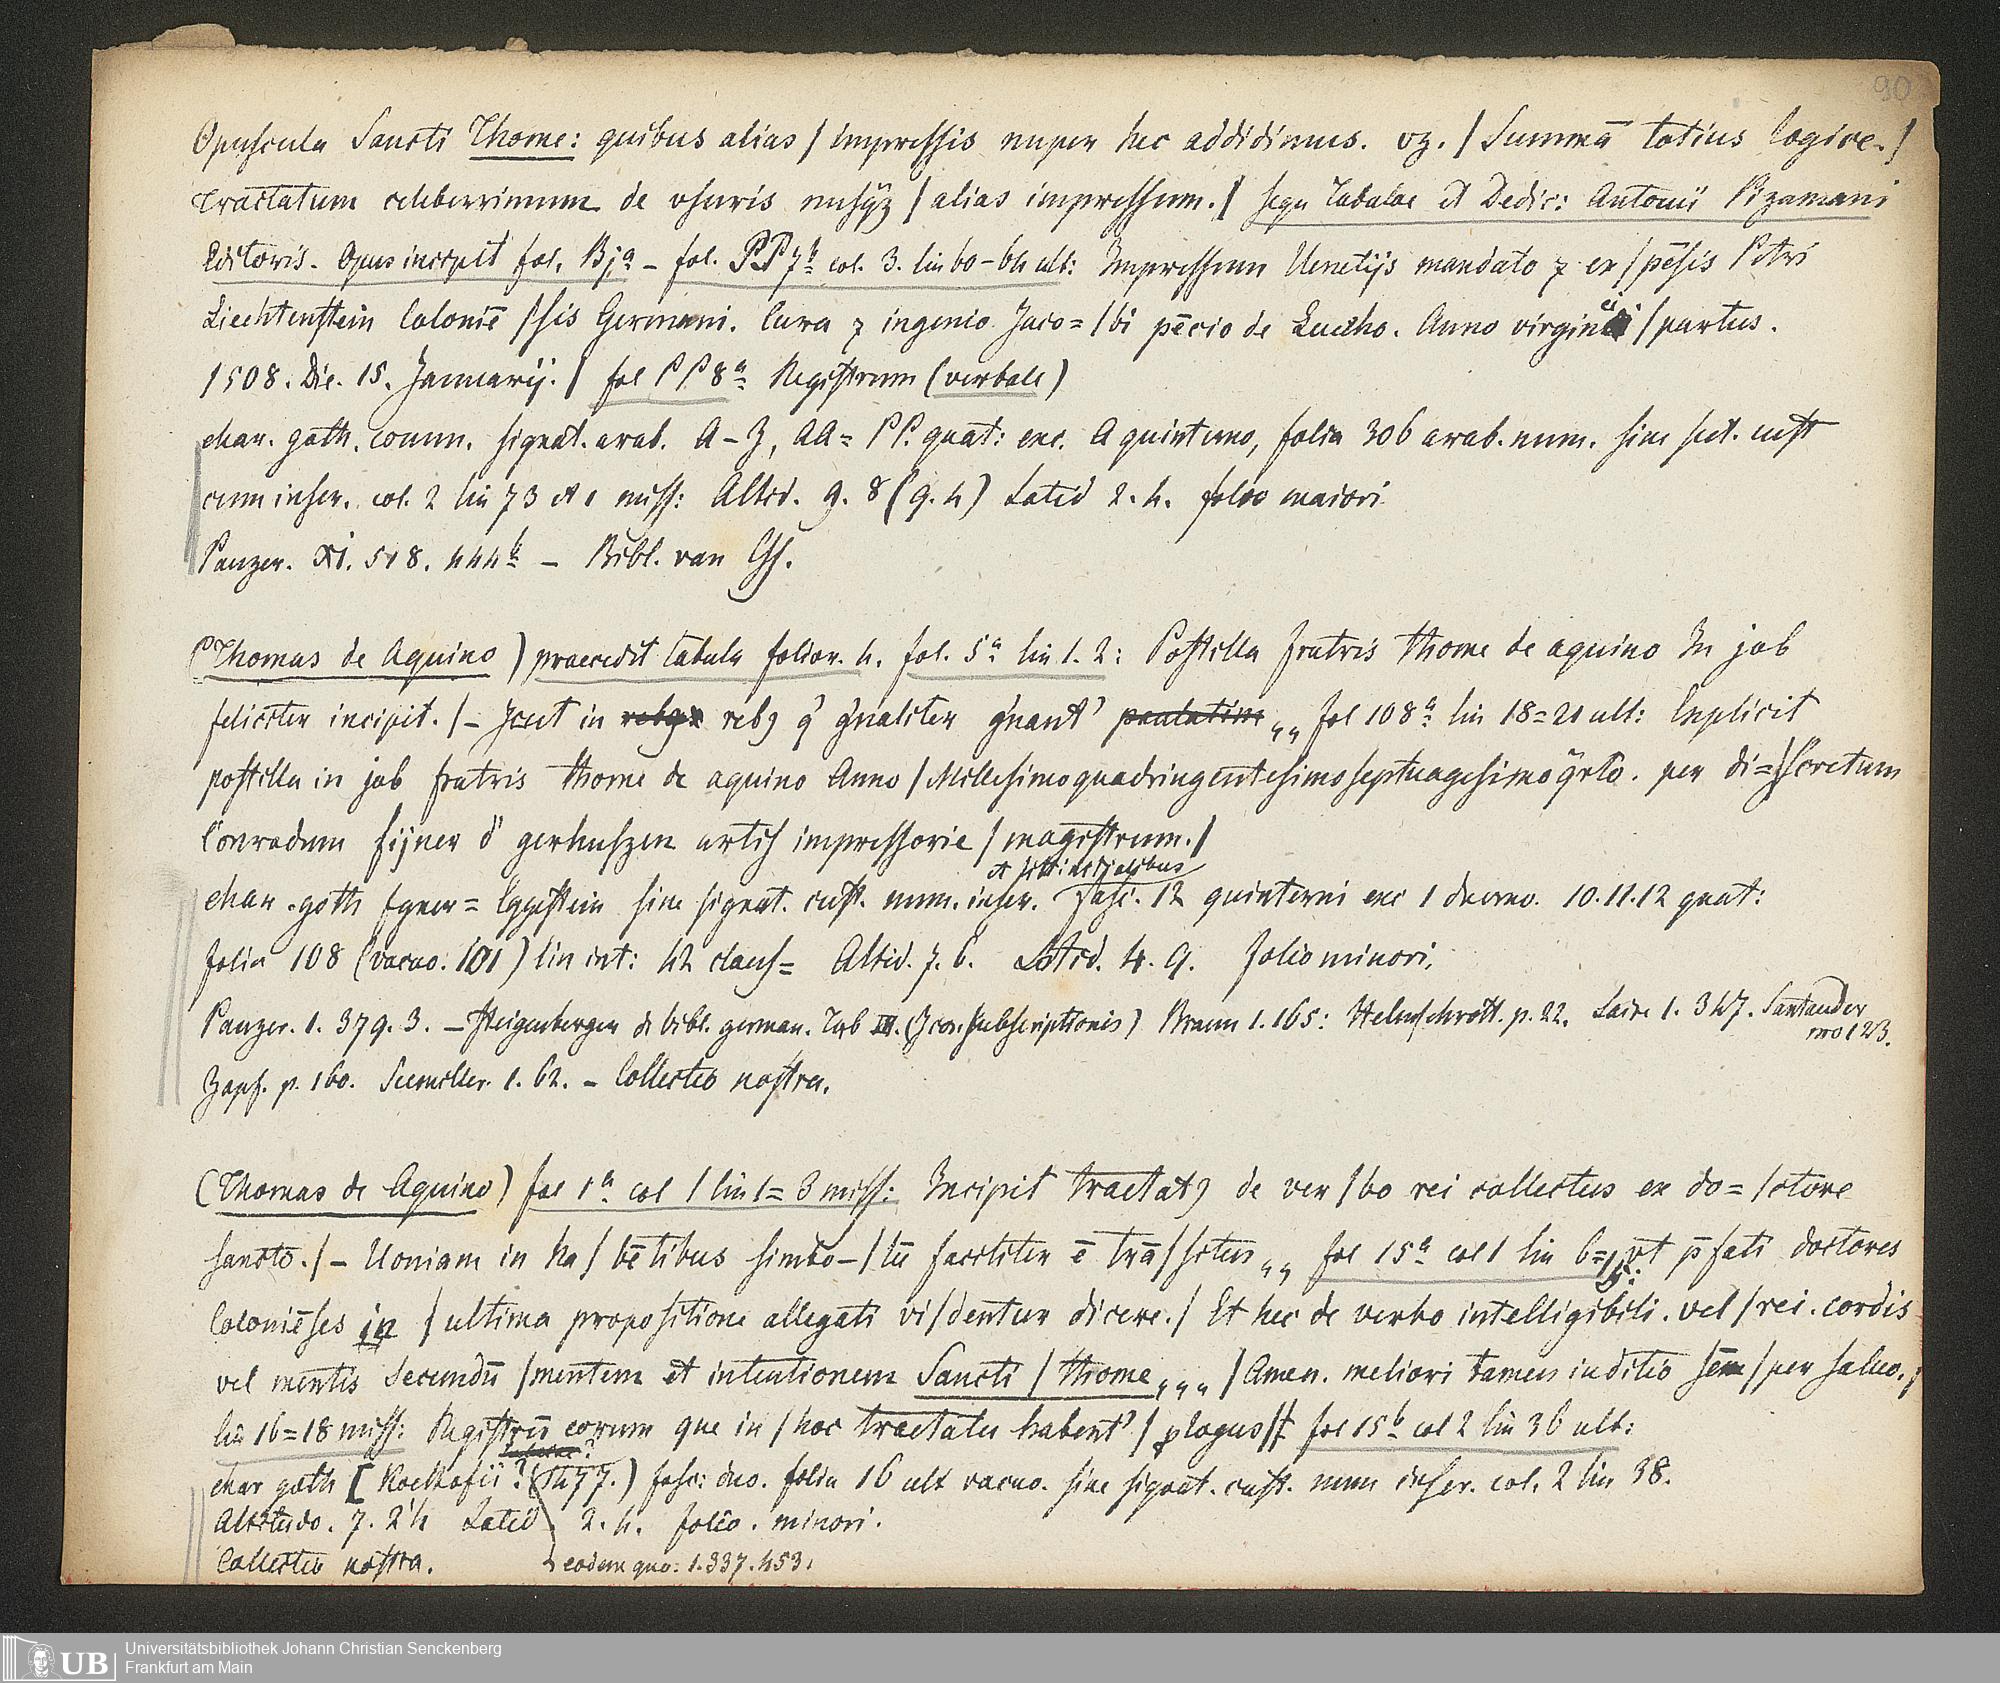 90
Opuscula Sancti Thome: quibus alias / impressis nuper hec addidimus. vz. / Summā totius logice. /
Tractatum celeberrimum de vsuris nusq̃z / alias impressum. / sequ Tabulae et Dedic: Antonii Pizamani
Editoris. Opus incipit fol. Bja - fol. PP7b col. 3. lin 60-64 ult: Impressum Uenetijs mandato z ex / pēsis Petri
Liechtenstein Coloniē / sis Germani. Cura z ingenio Jaco= / bi pēcio de Leucho. Anno virginei / partus.
1508. Die. 15. Januarij. / fol PP8a Registrum (verbale)
char. goth. comm. signat. arab. A-Z, AA=PP. quat: exc. A quinterno, folia 306 arab. num. sine cust
cum inscr. col. 2 lin 73 et 1 miss: Altid. 9. 8 (9. 4) Latid 2. 4. folio maiori
Panzer. XI. 518. 444b - Bibl. van Ess.
(Thomas de Aquino) praecedit tabula folior. 4. fol. 5a lin 1. 2: Postilla fratris thome de aquino In job
feliciter incipit. / - Icut in reb9 q̄ gn̄aliter gn̄ant' „ fol 108a lin 18=21 ult: Explicit
postilla in job fratris thome de aquino Anno / Millesimoquadringentesimoseptuagesimoq̄rto. per di= / scretum
Conradum fijner d' gerhuszen artis impressorie / magistrum. /
char. goth fyner= Eggestein sine signat. cust. num. inscr. et litt. initialibus fasc. 12 quinterni exc 1 duerno. 10.11.12 quat:
folia 108 (vacuo. 101) lin int: 42 claus= Altid. 7. 6. Latid. 4. 9. folio minori.
Panzer. 1. 379. 3. - Steigenberger de bibl. german. Tab III. (Icon. subscriptionis) Braun 1. 165: Helmschrott. p. 22. Laire 1. 347. Santander
nro 123.
Zapf. p. 160. Seemiller. 1. 62. - Collectio nostra.
(Thomas de Aquino) fol 1a col 1 lin 1=3 miss: Incipit tractat9 de ver / bo rei collectus ex do= / ctore
sancto. / - Uoniam in ha / bētibus simbo- / lū faciliter ē trā / situs „ fol 15a col 1 lin 6=15: vt p̄fati doctores
Coloniēses in / ultima propositione allegati vi / dentur dicere. / Et hec de verbo intelligibili. vel / rei. cordis
vel mentis Secundū / mentem et intentionem Sancti / thome „„ / Amen. meliori tamen inditio sēm / per saluo. /
lin 16=18 miss: Registrū eorum que in / hoc tractatu habent' / plogus // fol 15b col 2 lin 36 ult:
char goth [Koelhofii? (1477.) fasc: duo. folia 16 ult vacuo. sine signat. cust. num inscr. col. 2 lin 38.
Altitudo. 7. 2 1/2 Latid 2. 4. folio. minori.
Collectio nostra. eodem quo: 1.337.453.
UB Universitätsbibliothek Johann Christian Senckenberg
Frankfurt am Main